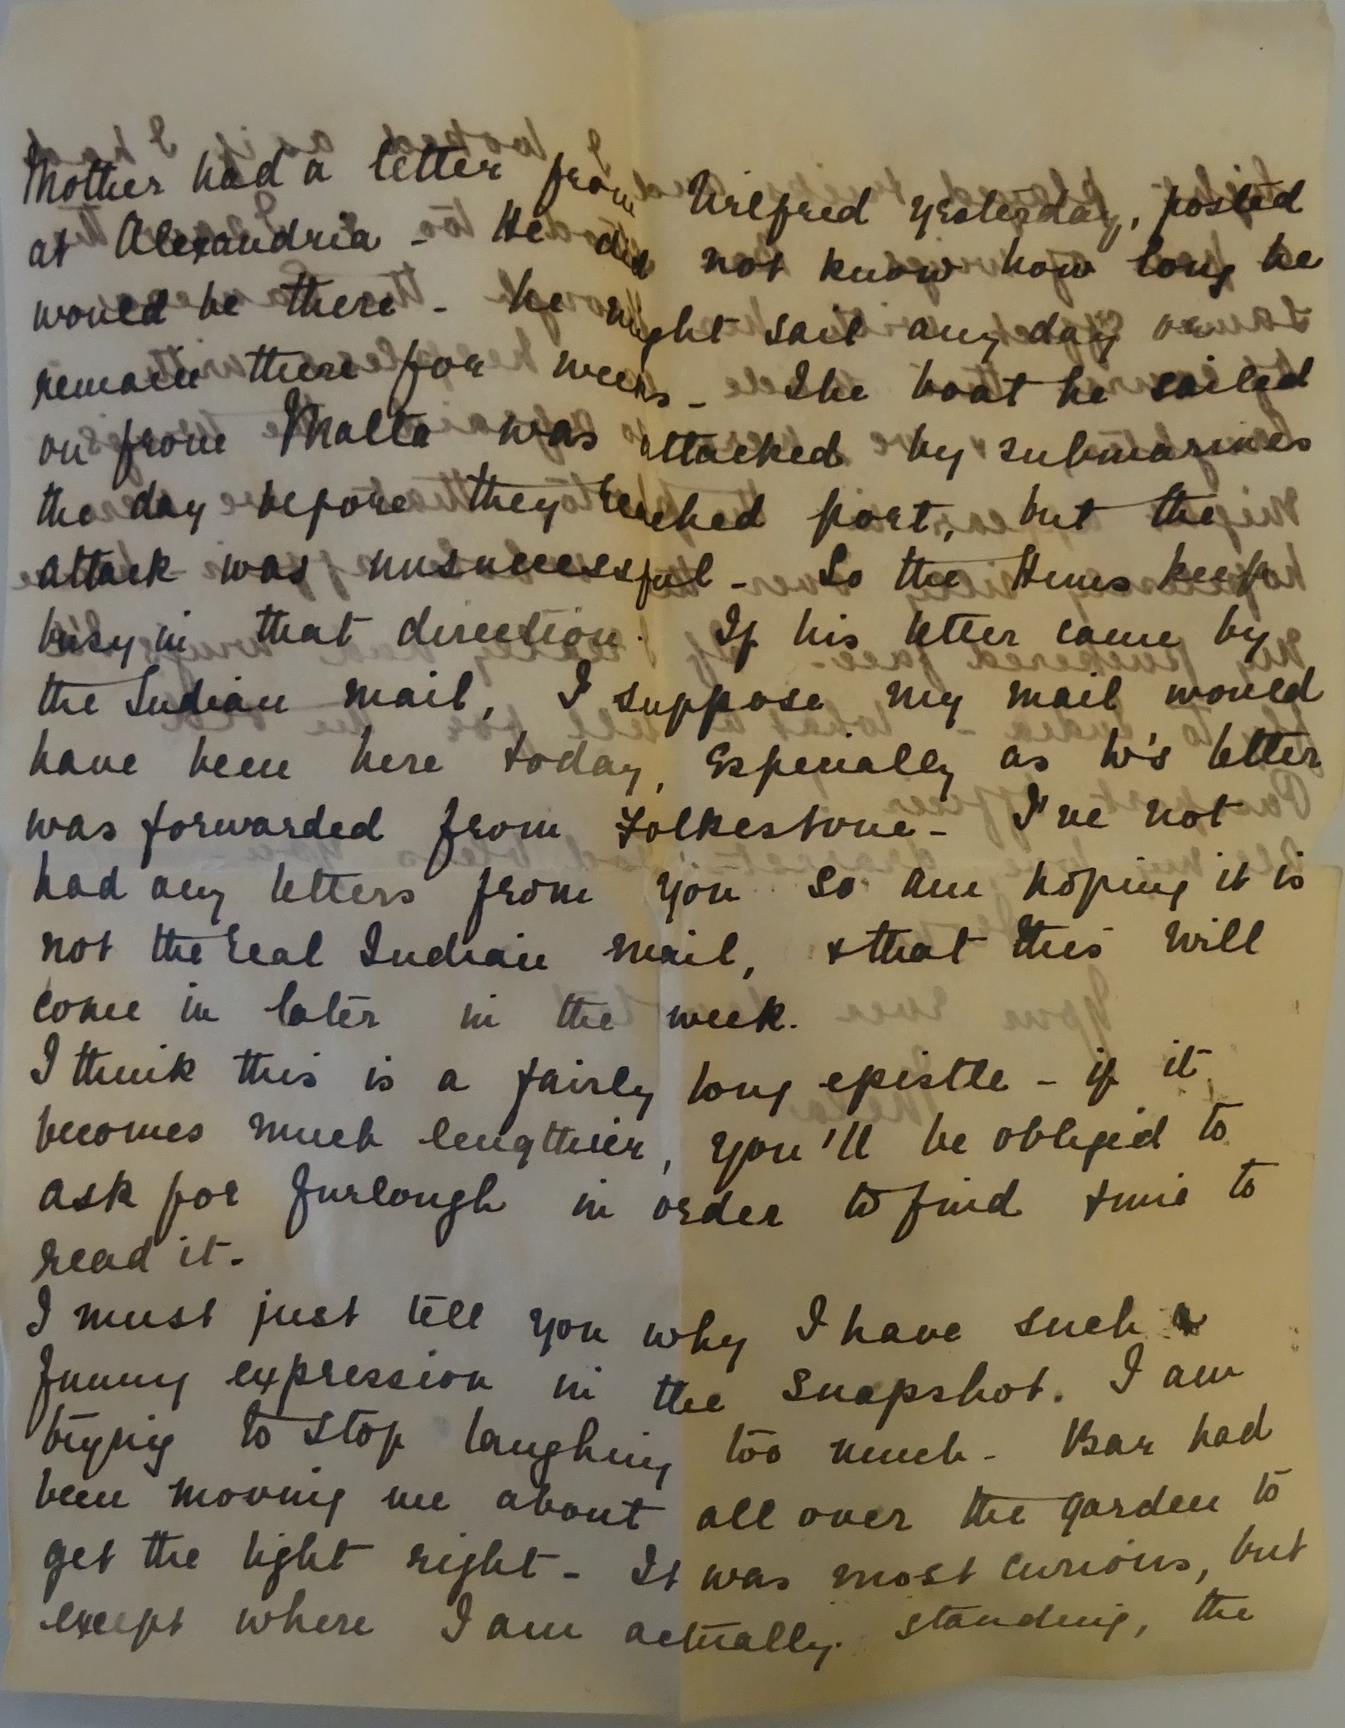 Mother had a letter from Wilfred yesterday, posted
at Alexandria - He did not know how long he
would be there - he might sail any day or
remain there for weeks - The boat he sailed
on from Malta was attacked by submarines
the day before they reached port, but the
attack was unsuccessful - So the Huns keep
busy in that direction. If his letter came by
the Indian mail, I suppose my mail would
have been here today, especially as W's letter
was forwarded from Folkestone - I've not
had any letters from you so am hoping it is
not the real Indian mail, & that this will
come in later in the week.
I think this is a fairly long epistle - if it
becomes much lengthier, you'll be obliged to
ask for furlough in order to find time to
read it -
I must just tell you why I have such a
funny expression in the snapshot. I am
trying to stop laughing too much - Bar had
been moving me about all over the garden to
get the light right - It was most curious, but
except where I am actually standing, the